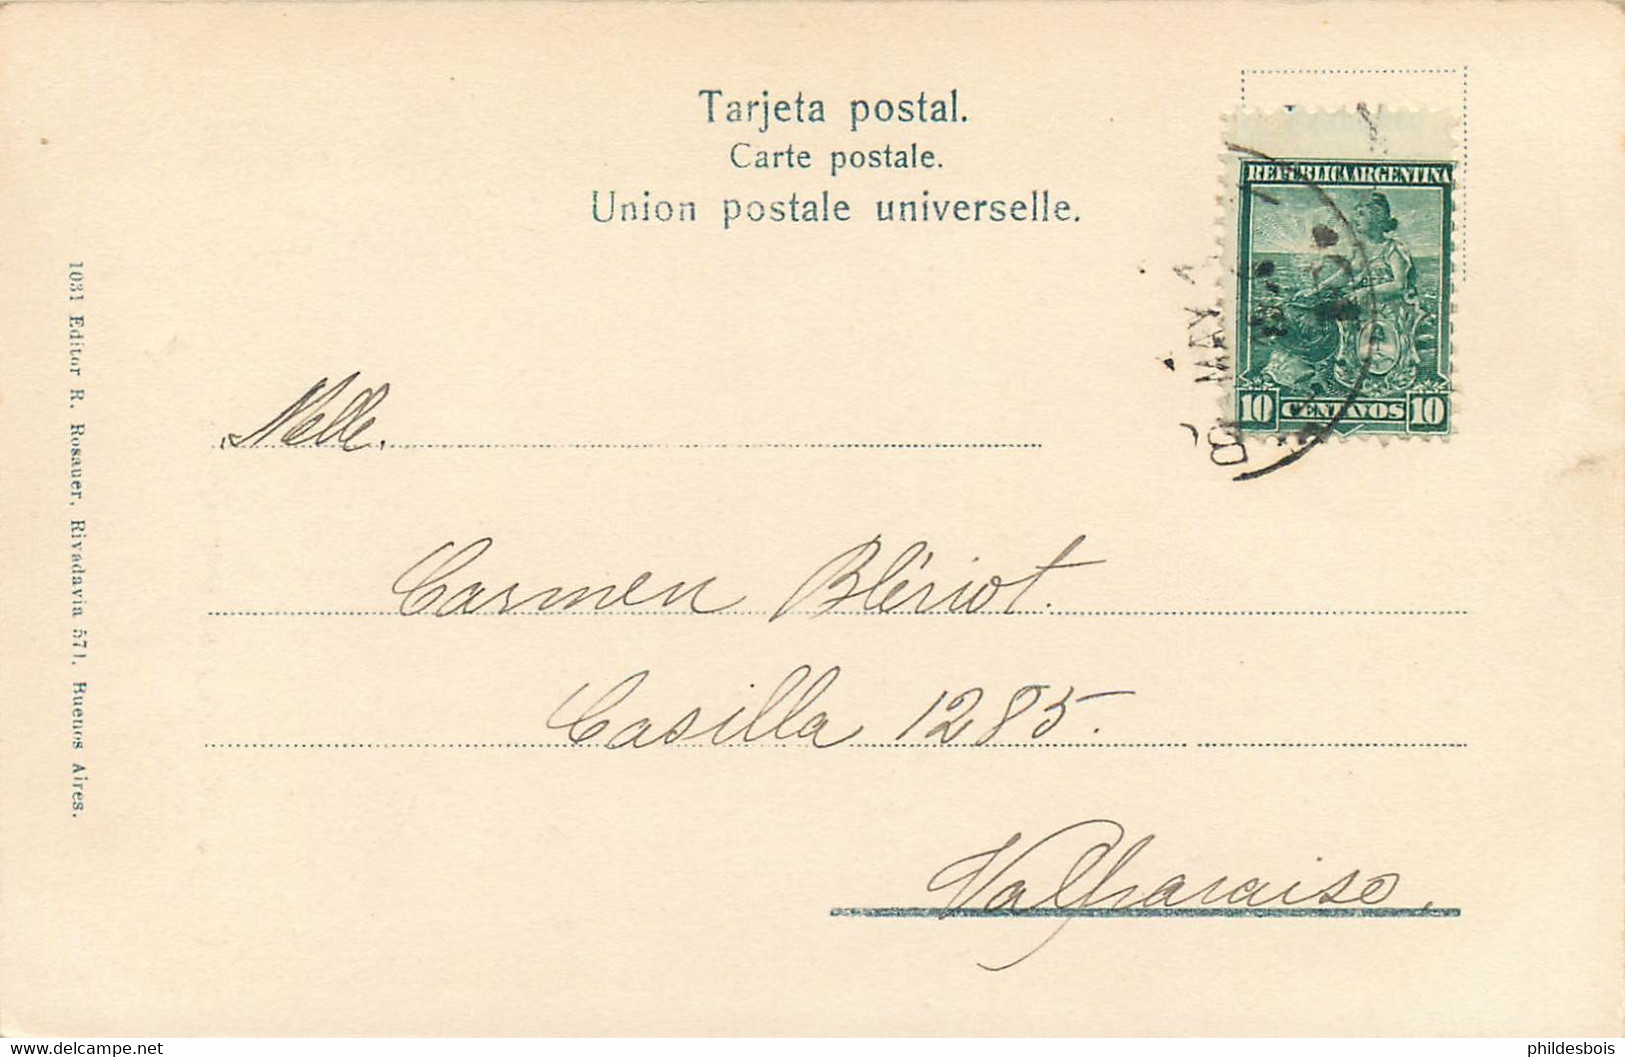 Tarjeta postal.
Carte postale.
Union postale universelle.
REPUBLICA ARGENTINA
10 CENTAVOS 10
MAY
B
Melle.
Carmen Blériot.
Casilla 1285.
Valparaiso.
1031 Editor R. Rosauer, Rivadavia 571, Buenos Aires.
Delcampe.net
phildesbois